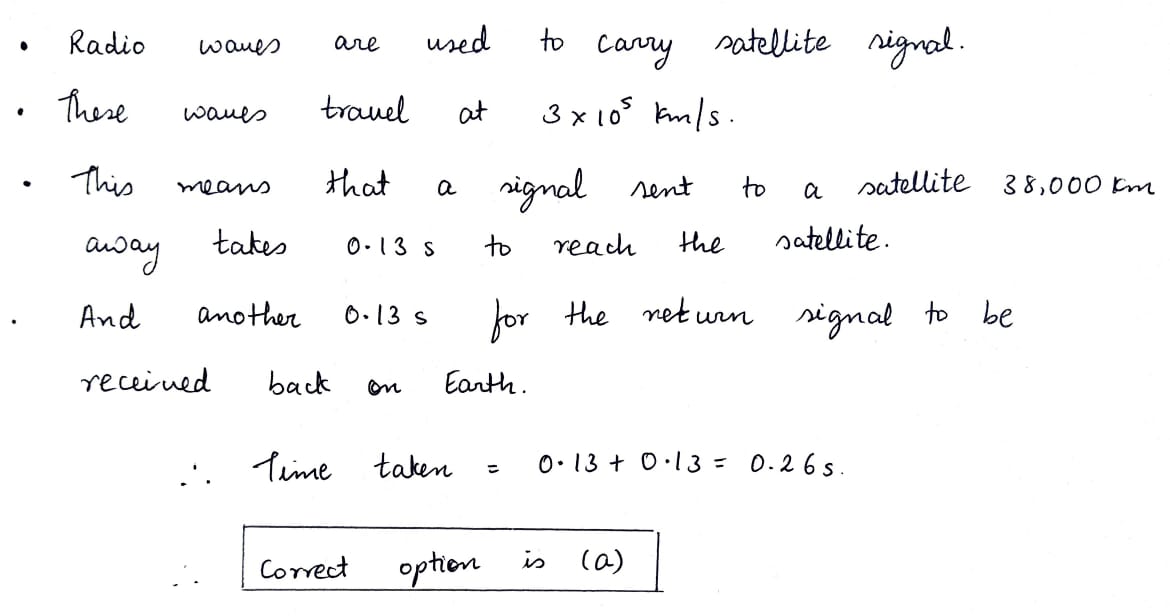 • Radio waves are used to carry satellite signal.
• These waves travel at 3 × 10⁵ km/s.
• This means that a signal sent to a satellite 38,000 km
away takes 0.13 s to reach the satellite.
. And another 0.13 s for the return signal to be
received back on Earth.
∴ Time taken = 0.13 + 0.13 = 0.26 s.
∴ Correct option is (a)